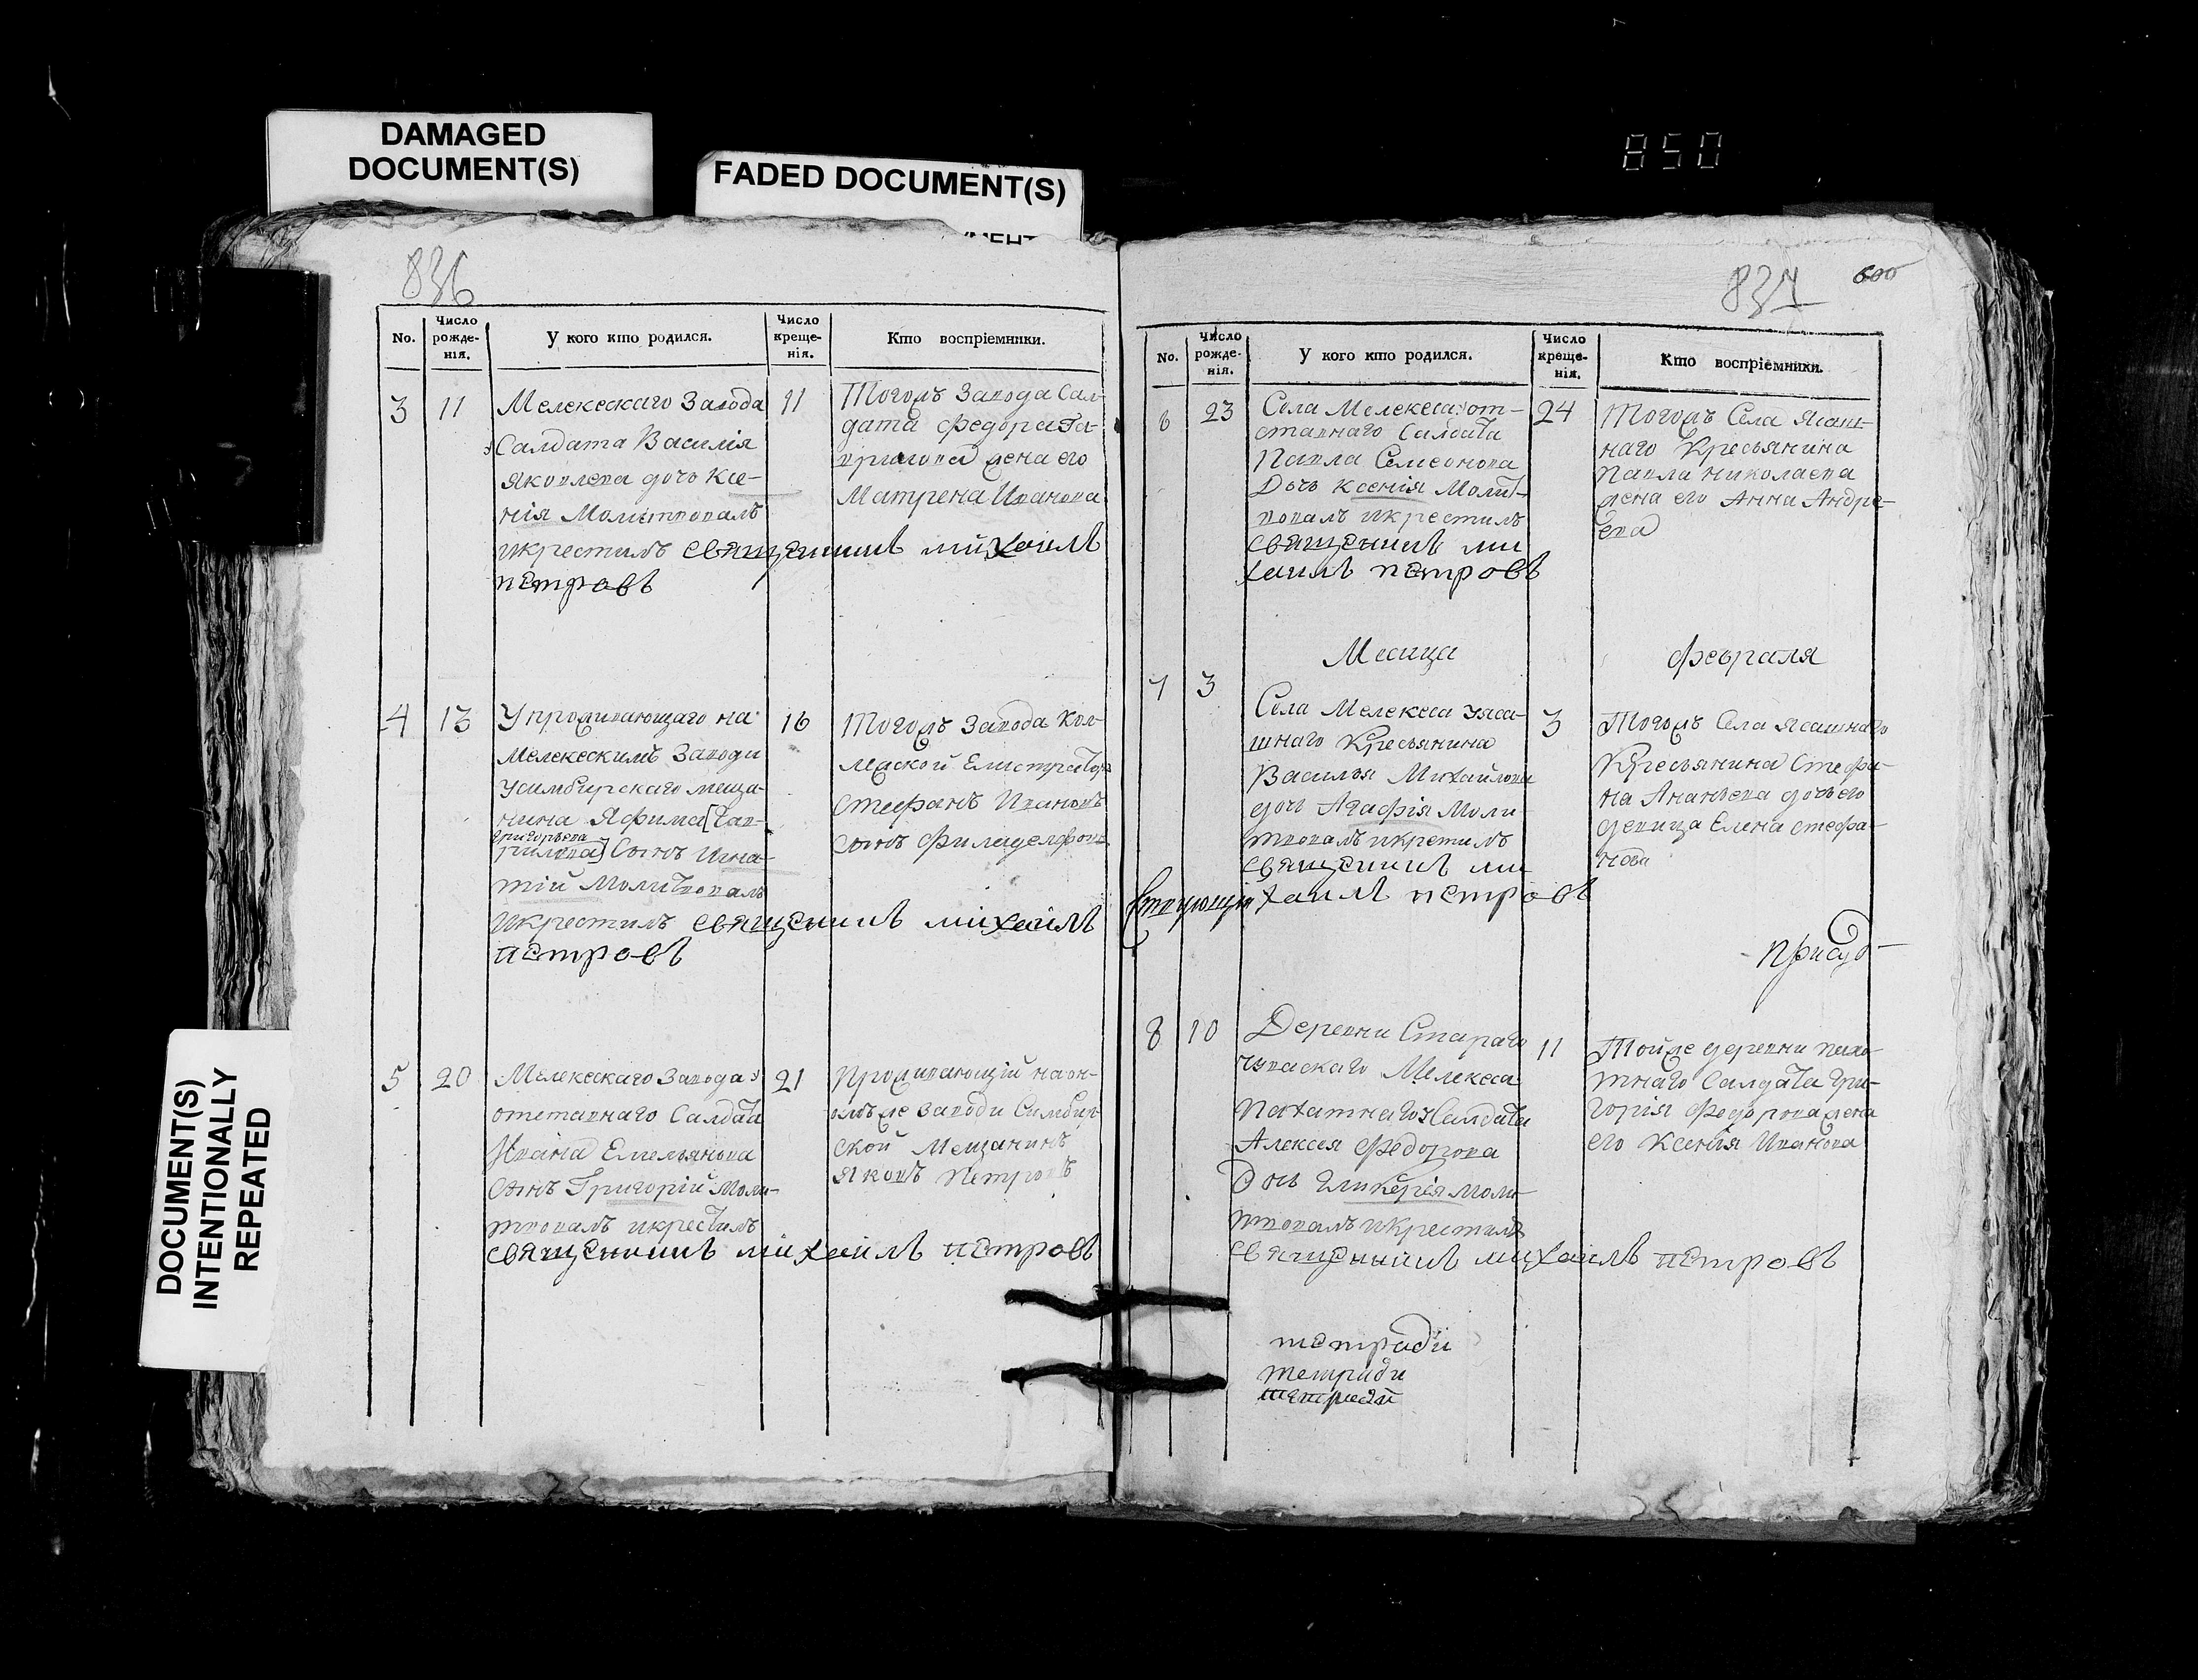 DAMAGED
DOCUMENT(S)
FADED DOCUMENT(S)
850
DOCUMENT(S)
INTENTIONALLY
REPEATED
836
No.
Число
рожде-
нія.
У кого кто родился.
Число
креще-
нія.
Кто воспріемники.
3
11
Мелекескаго Завода
Салдата Василія
Яковлева дочь Ксе-
нія Молитвовалъ
икрестилъ священникъ михаилъ
петровъ
11
Тогожъ Завода Сал-
дата Федора Га-
врилова жена его
Матрена Иванова
4
13
У проживающаго на
Мелекескимъ Заводи
усимбирскаго меща-
нина Яфима [Гав-
григорьева
рилова] Сынъ Игна-
тій Молитвовалъ
икрестилъ священникъ михаилъ
петровъ
16
Тогожъ Завода Кол-
лежской
Стефанъ Ивановъ
сынъ
5
20
Мелекескаго Завода
отставнаго Салдата
Ивана Емельянова
Сынъ Григорій Моли-
твовалъ икрестилъ
священникъ михаилъ петровъ
21
Проживающій наон-
омъже Заводи Симбир-
ской Мещанинъ
Яковъ Петровъ
837
600
No.
Число
рожде-
нія.
У кого кто родился.
Число
креще-
нія.
Кто воспріемники.
6
23
Села Мелекеса от-
ставнаго Салдата
Павла Семеонова
Дочь Ксенія Молит-
вовалъ икрестилъ
священникъ ми
хаилъ петровъ
24
Тогожъ Села Ясаш-
наго Кресьянина
Павла Николаева
жена его Анна Андре-
ева
Месица
Февраля
7
3
Села Мелекеса уяса-
шнаго Кресьянина
Василья Михайлова
дочь Агафія Моли
твовалъ икрестилъ
священникъ ми
хаилъ петровъ
3
Тогожъ Села Ясашнаго
Кресьянина Стефа-
на Ананьева дочь его
девица Елена Стефа-
нова
присуд-
ствующій
8
10
Деревни Стараго
чуваскаго Мелекеса
Пахатнаго Салдата
Алексея Федорова
Дочь Гликерія моли-
твовалъ икрестилъ
священникъ михаилъ петровъ
11
Тойже деревни пахо-
тнаго Салдата Гри-
горія Федорова жена
его Ксенія Иванова
тетради
тетради
тетради